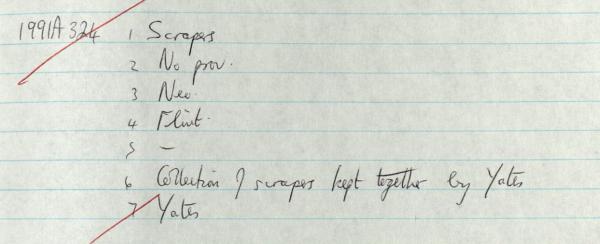 1991A324 1 Scrapers
2 No prov.
3 Neo.
4 Flint.
5 —
6 Collection of scrapers kept together by Yates
7 Yates